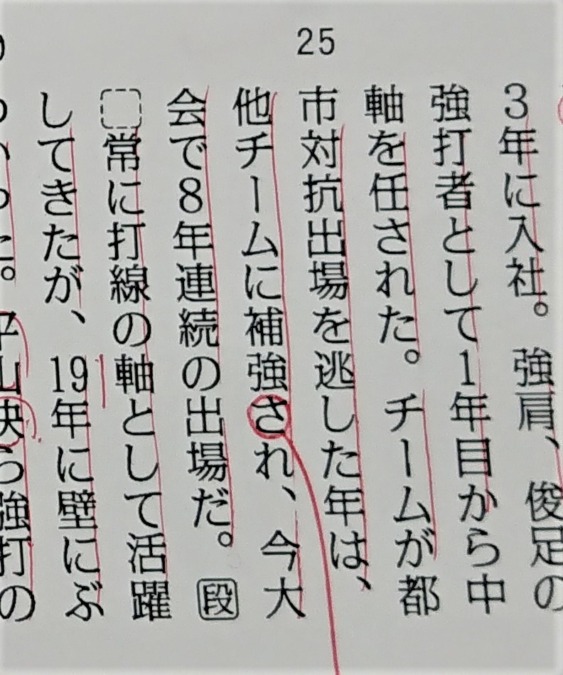 25
3年に入社。強肩、俊足の
強打者として1年目から中
軸を任された。チームが都
市対抗出場を逃した年は、
他チームに補強され、今大
会で8年連続の出場だ。段
常に打線の軸として活躍
してきたが、19年に壁にぶ